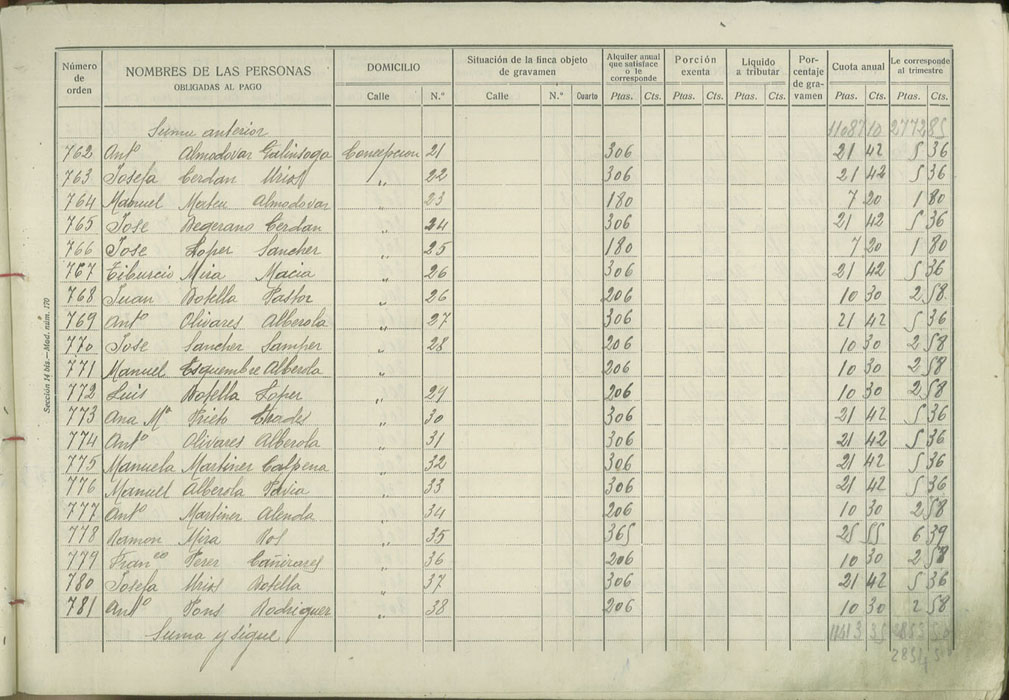 Número de orden | NOMBRES DE LAS PERSONAS OBLIGADAS AL PAGO | DOMICILIO | Situación de la finca objeto de gravamen | Alquiler anual que satisface o le corresponde | Porción exenta | Liquido a tributar | Por-centaje de gra-vamen | Cuota anual | Le corresponde al trimestre
Calle | N.° | Calle | N.° | Cuarto | Ptas. | Cts. | Ptas. | Cts. | Ptas. | Cts. | Ptas. | Cts. | Ptas. | Cts.
Suma anterior 11087 10 2772 85
762 Antº Almodovar Galinsoga Concepcion 21 306 21 42 5 36
763 Josefa Cerdan Urios " 22 306 21 42 5 36
764 Manuel Mateu Almodovar " 23 180 7 20 1 80
765 Jose Begerano Cerdan " 24 306 21 42 5 36
766 Jose Lopez Sanchez " 25 180 7 20 1 80
767 Tiburcio Mira Macia " 26 306 21 42 5 36
768 Juan Botella Pastor " 26 206 10 30 2 58
769 Antº Olivares Alberola " 27 306 21 42 5 36
770 Jose Sanchez Samper " 28 206 10 30 2 58
771 Manuel Esquembre Alberola " 206 10 30 2 58
772 Luis Botella Lopez " 29 206 10 30 2 58
773 Ana Mª Prieto " 30 306 21 42 5 36
774 Antº Olivares Alberola " 31 306 21 42 5 36
775 Manuela Martinez Calpena " 32 306 21 42 5 36
776 Manuel Alberola Pavia " 33 306 21 42 5 36
777 Antº Martinez Alenda " 34 206 10 30 2 58
778 Ramon Mira " 35 365 25 55 6 39
779 Franco Perez Cañizares " 36 206 10 30 2 58
780 Josefa Urios Botella " 37 306 21 42 5 36
781 Antº Pons Rodriguez " 38 206 10 30 2 58
Suma y sigue
Sección 14 bis.—Mod. núm. 170